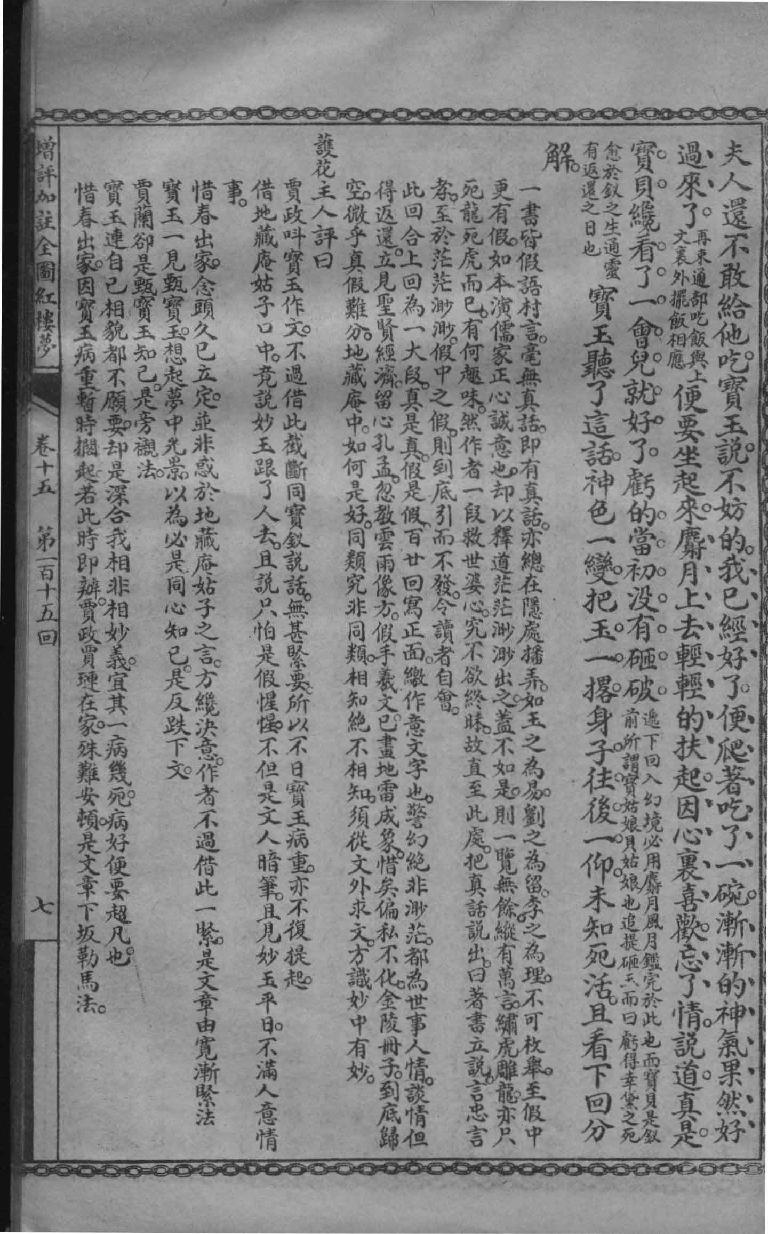 夫人還不敢給他吃寶玉說不妨的我已經好了便爬著吃了一碗漸漸的神氣果然好
過來了再東通部吃飯與上文裏外擺飯相應便要坐起來麝月上去輕輕的扶起因心裏喜歡忘了情說道真是
寶貝纔看了一會兒就好了虧的當初沒有砸破遞下回入幻境必用麝月風月鑑完於此也而寶貝是釵前所謂寶姑娘貝姑娘也追提砸玉而曰虧得幸黛之死
愈於釵之生通靈有返還之日也寶玉聽了這話神色一變把玉一撂身子往後一仰未知死活且看下回分
解
一書皆假語村言毫無真話即有真話亦總在隱處播弄如玉之為易劉之為留李之為理不可枚舉至假中
更有假如本演儒家正心誠意也却以釋道茫茫渺渺出之蓋不如是則一覽無餘縱有萬言繡虎雕龍亦只
死龍死虎而已有何趣味然作者一段救世婆心究不欲終昧故直至此處把真話說出曰著書立說言忠言
孝至於茫茫渺渺假中之假則到底引而不發令讀者自會
此回合上回為一大段真是真假是假百廿回寫正面緻作意文字也警幻絕非渺茫都為世事人情談情但
得返還立見聖賢經濟留心孔孟忽教雲雨像方假手羲文已畫地雷成象惜矣偏私不化金陵冊子到底歸
空微乎真假難分地藏庵中如何是好同類究非同類相知絶不相知須從文外求文方識妙中有妙
護花主人評曰
賈政叫寶玉作文不過借此截斷同寶釵說話無甚緊要所以不日寶玉病重亦不復提起
借地藏庵姑子口中竟說妙玉跟了人去且說只怕是假惺惺不但是文人暗筆且見妙玉平日不滿人意情
事
惜春出家念頭久已立定並非惑於地藏庵姑子之言方纔決意作者不過借此一緊是文章由寬漸緊法
寶玉一見甄寶玉想起夢中光景以為必是同心知己是反跌下文
賈蘭卻是甄寶玉知己是旁襯法
寶玉連自己相貌都不願要却是深合我相非相妙義宜其一病幾死病好便要超凡也
惜春出家因寶玉病重暫時擱起若此時即辦賈政賈璉在家殊難安頓是文章下坂勒馬法
增評加註全圖紅樓夢
卷十五 第一百十五回
七